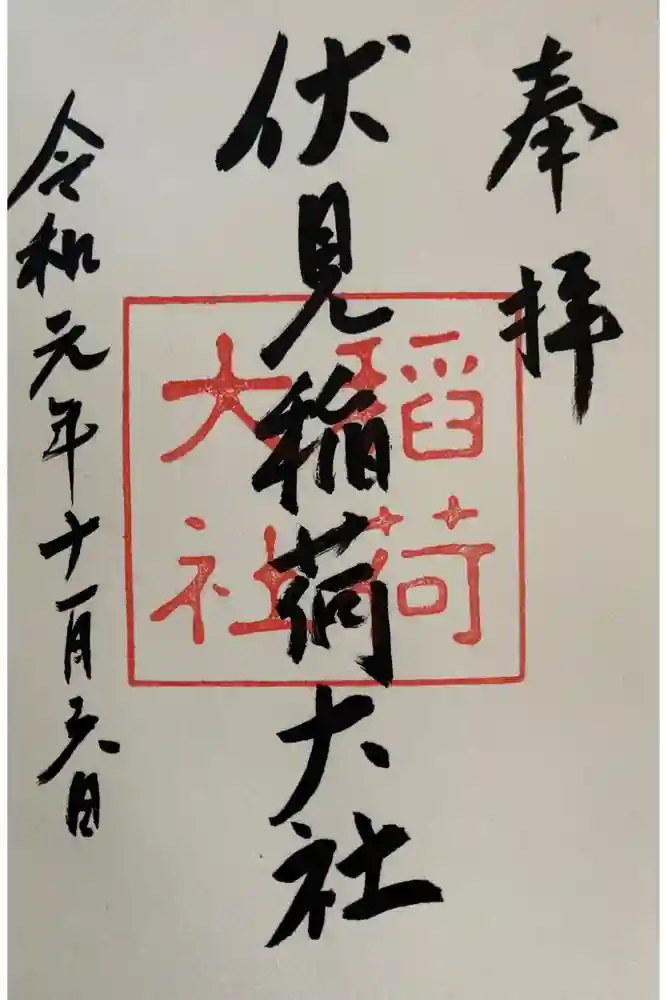 奉拝
伏見稲荷大社
令和元年十一月六日
稲荷
大社